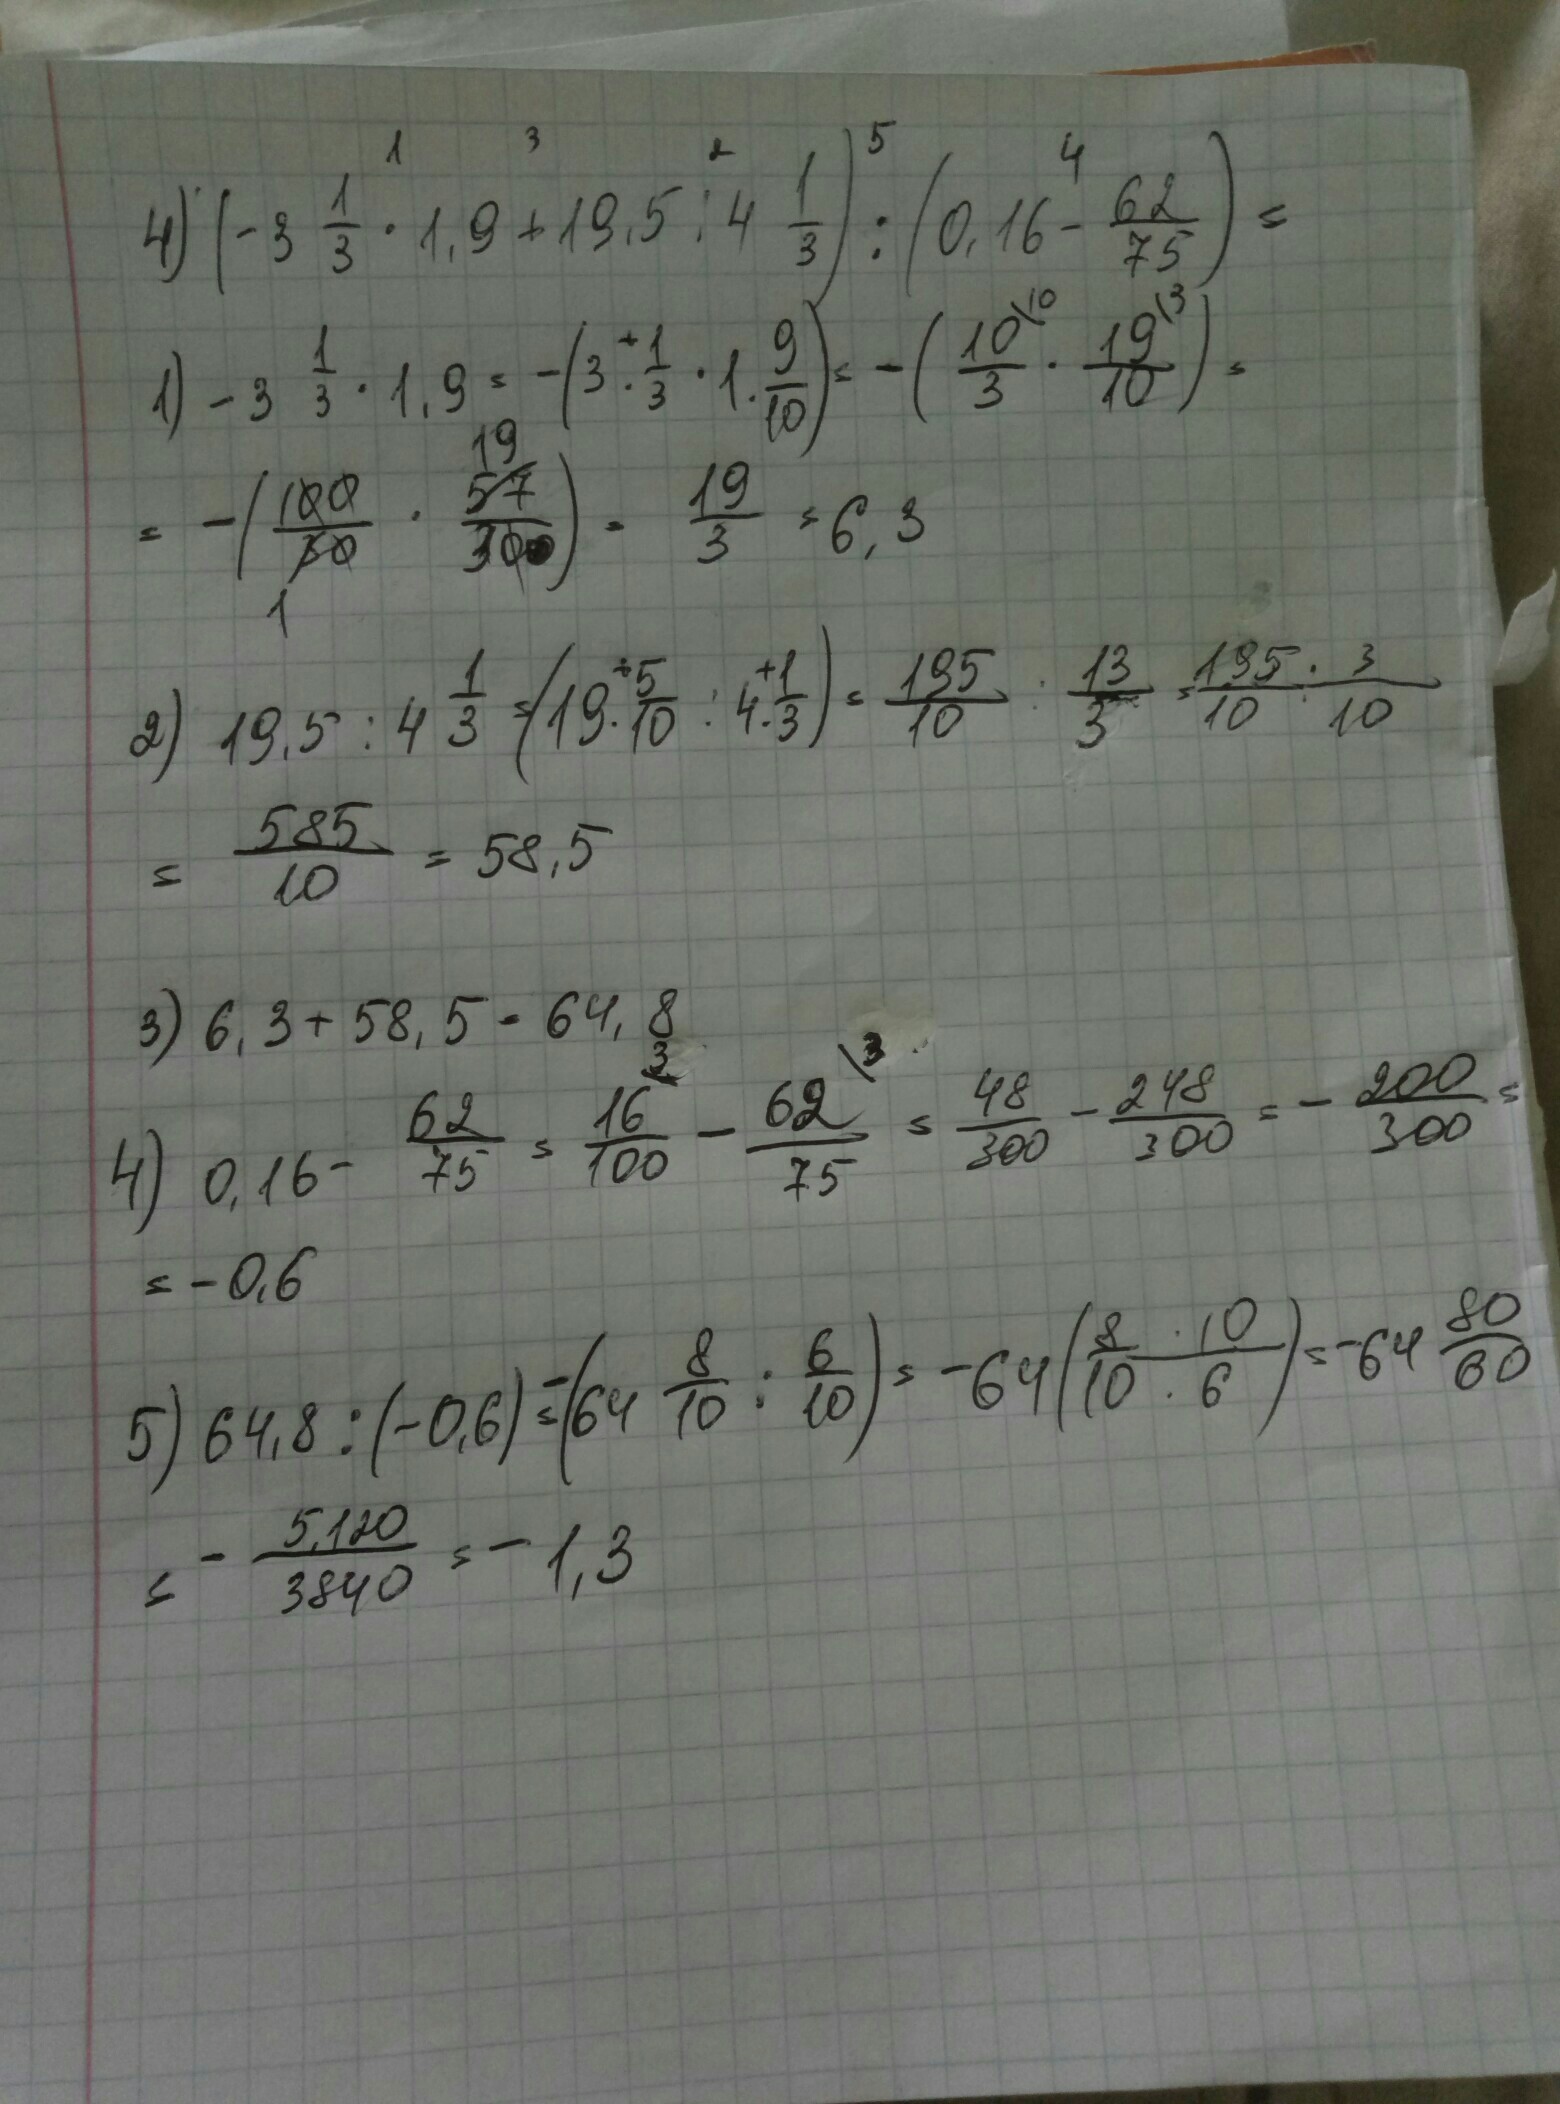 1 3 2 5 4
4) (-3 1/3 · 1,9 + 19,5 : 4 1/3) : (0,16 - 62/75) =
1) -3 1/3 · 1,9 = -(3 · + 1/3 · 1 · 9/10) = -(10\10/3 · 19\3/10) =
= -(100/30 · 57/300) = 19/3 = 6,3
19
1
2) 19,5 : 4 1/3 = (19 · + 5/10 : 4 · + 1/3) = 195/10 : 13/3 = 195 · 3/10 · 10
= 585/10 = 58,5
3) 6,3 + 58,5 = 64,8
4) 0,16 - 62/75 = 16\3/100 - 62\3/75 = 48/300 - 248/300 = - 200/300 =
= -0,6
5) 64,8 : (-0,6) = -(64 8/10 : 6/10) = -64 (8 · 10/10 · 6) = -64 80/60
= - 5,120/3840 = - 1,3